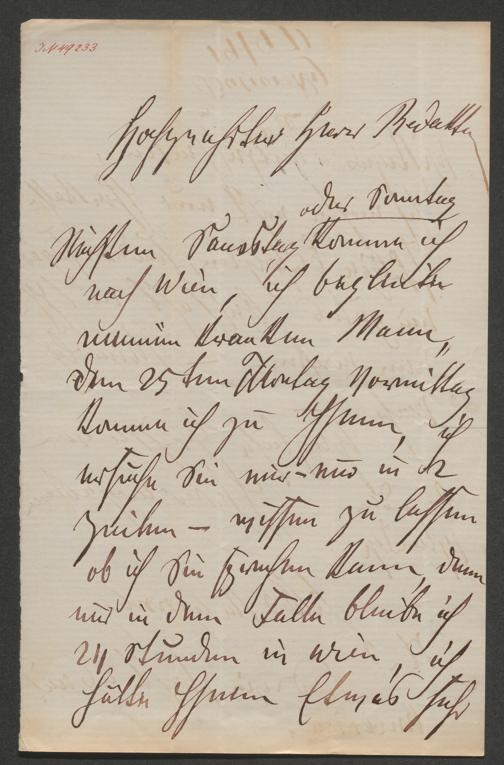 IN 49233
Hochgeehrter Herr Redakteur
oder Sonntag
Nächsten Samstag komme ich
nach Wien, ich begleite
meinen kranken Mann,
den 25ten Montag Vormittag
komme ich zu Ihnen, ich
ersuche Sie mir – nur in 2
Zeilen – wissen zu lassen
ob ich Sie sprechen kann, denn
nur in dem Falle bleibe ich
24 Stunden in Wien, ich
hätte Ihnen Etwas sehr